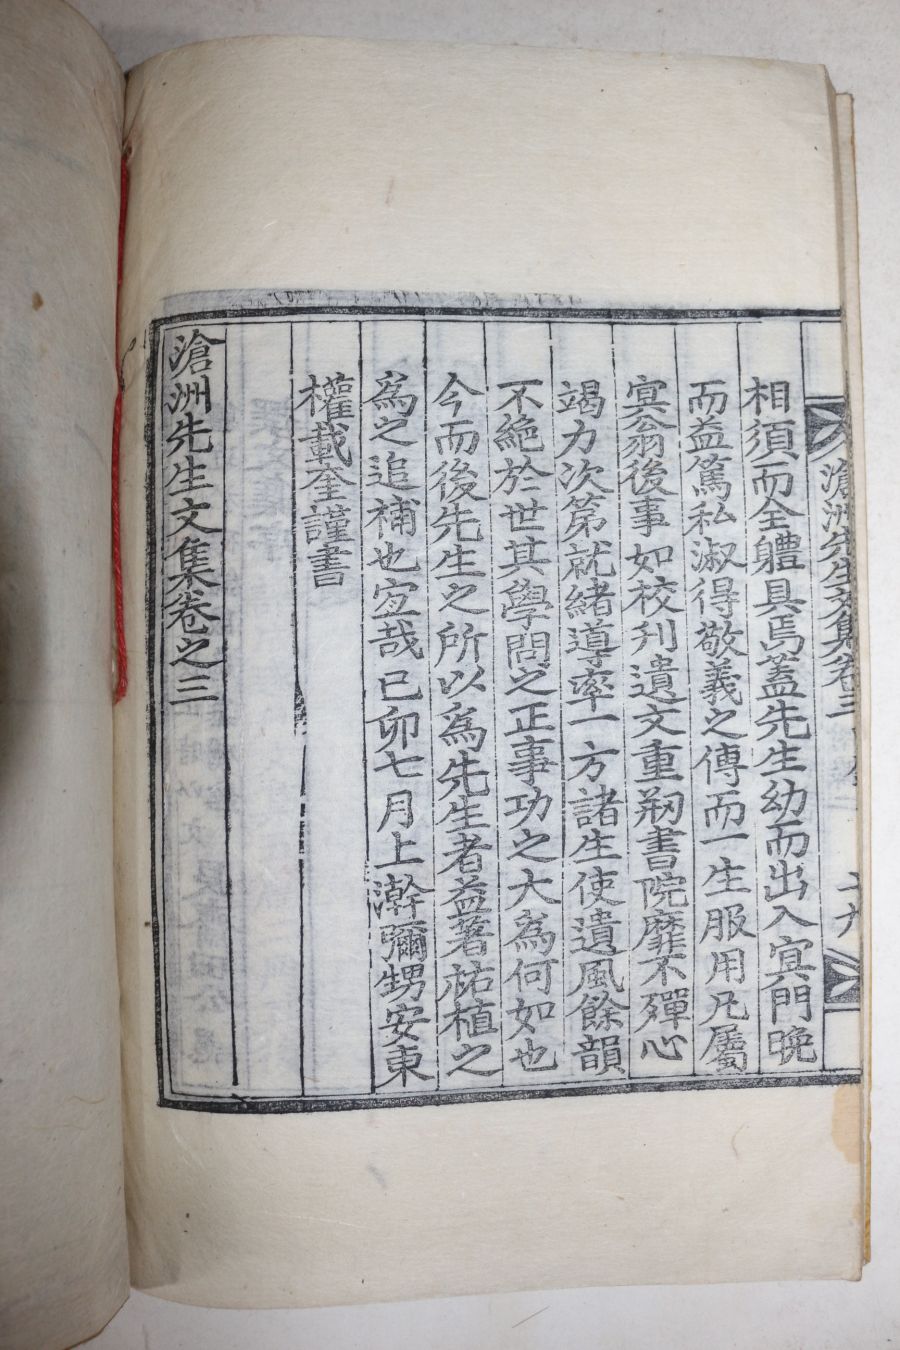 滄洲先生文集卷三
相須而全軆具焉蓋先生幼而出入㝠門晩
而益篤私淑得敬義之傳而一生服用凡屬
㝠翁後事如校刋遺文重剏書院靡不殫心
竭力次第就緖導率一方諸生使遺風餘韻
不絶於世其學問之正事功之大為何如也
今而後先生之所以為先生者益著祐植之
為之追補也宜哉已卯七月上澣彌甥安東
權載奎謹書
滄洲先生文集卷之三